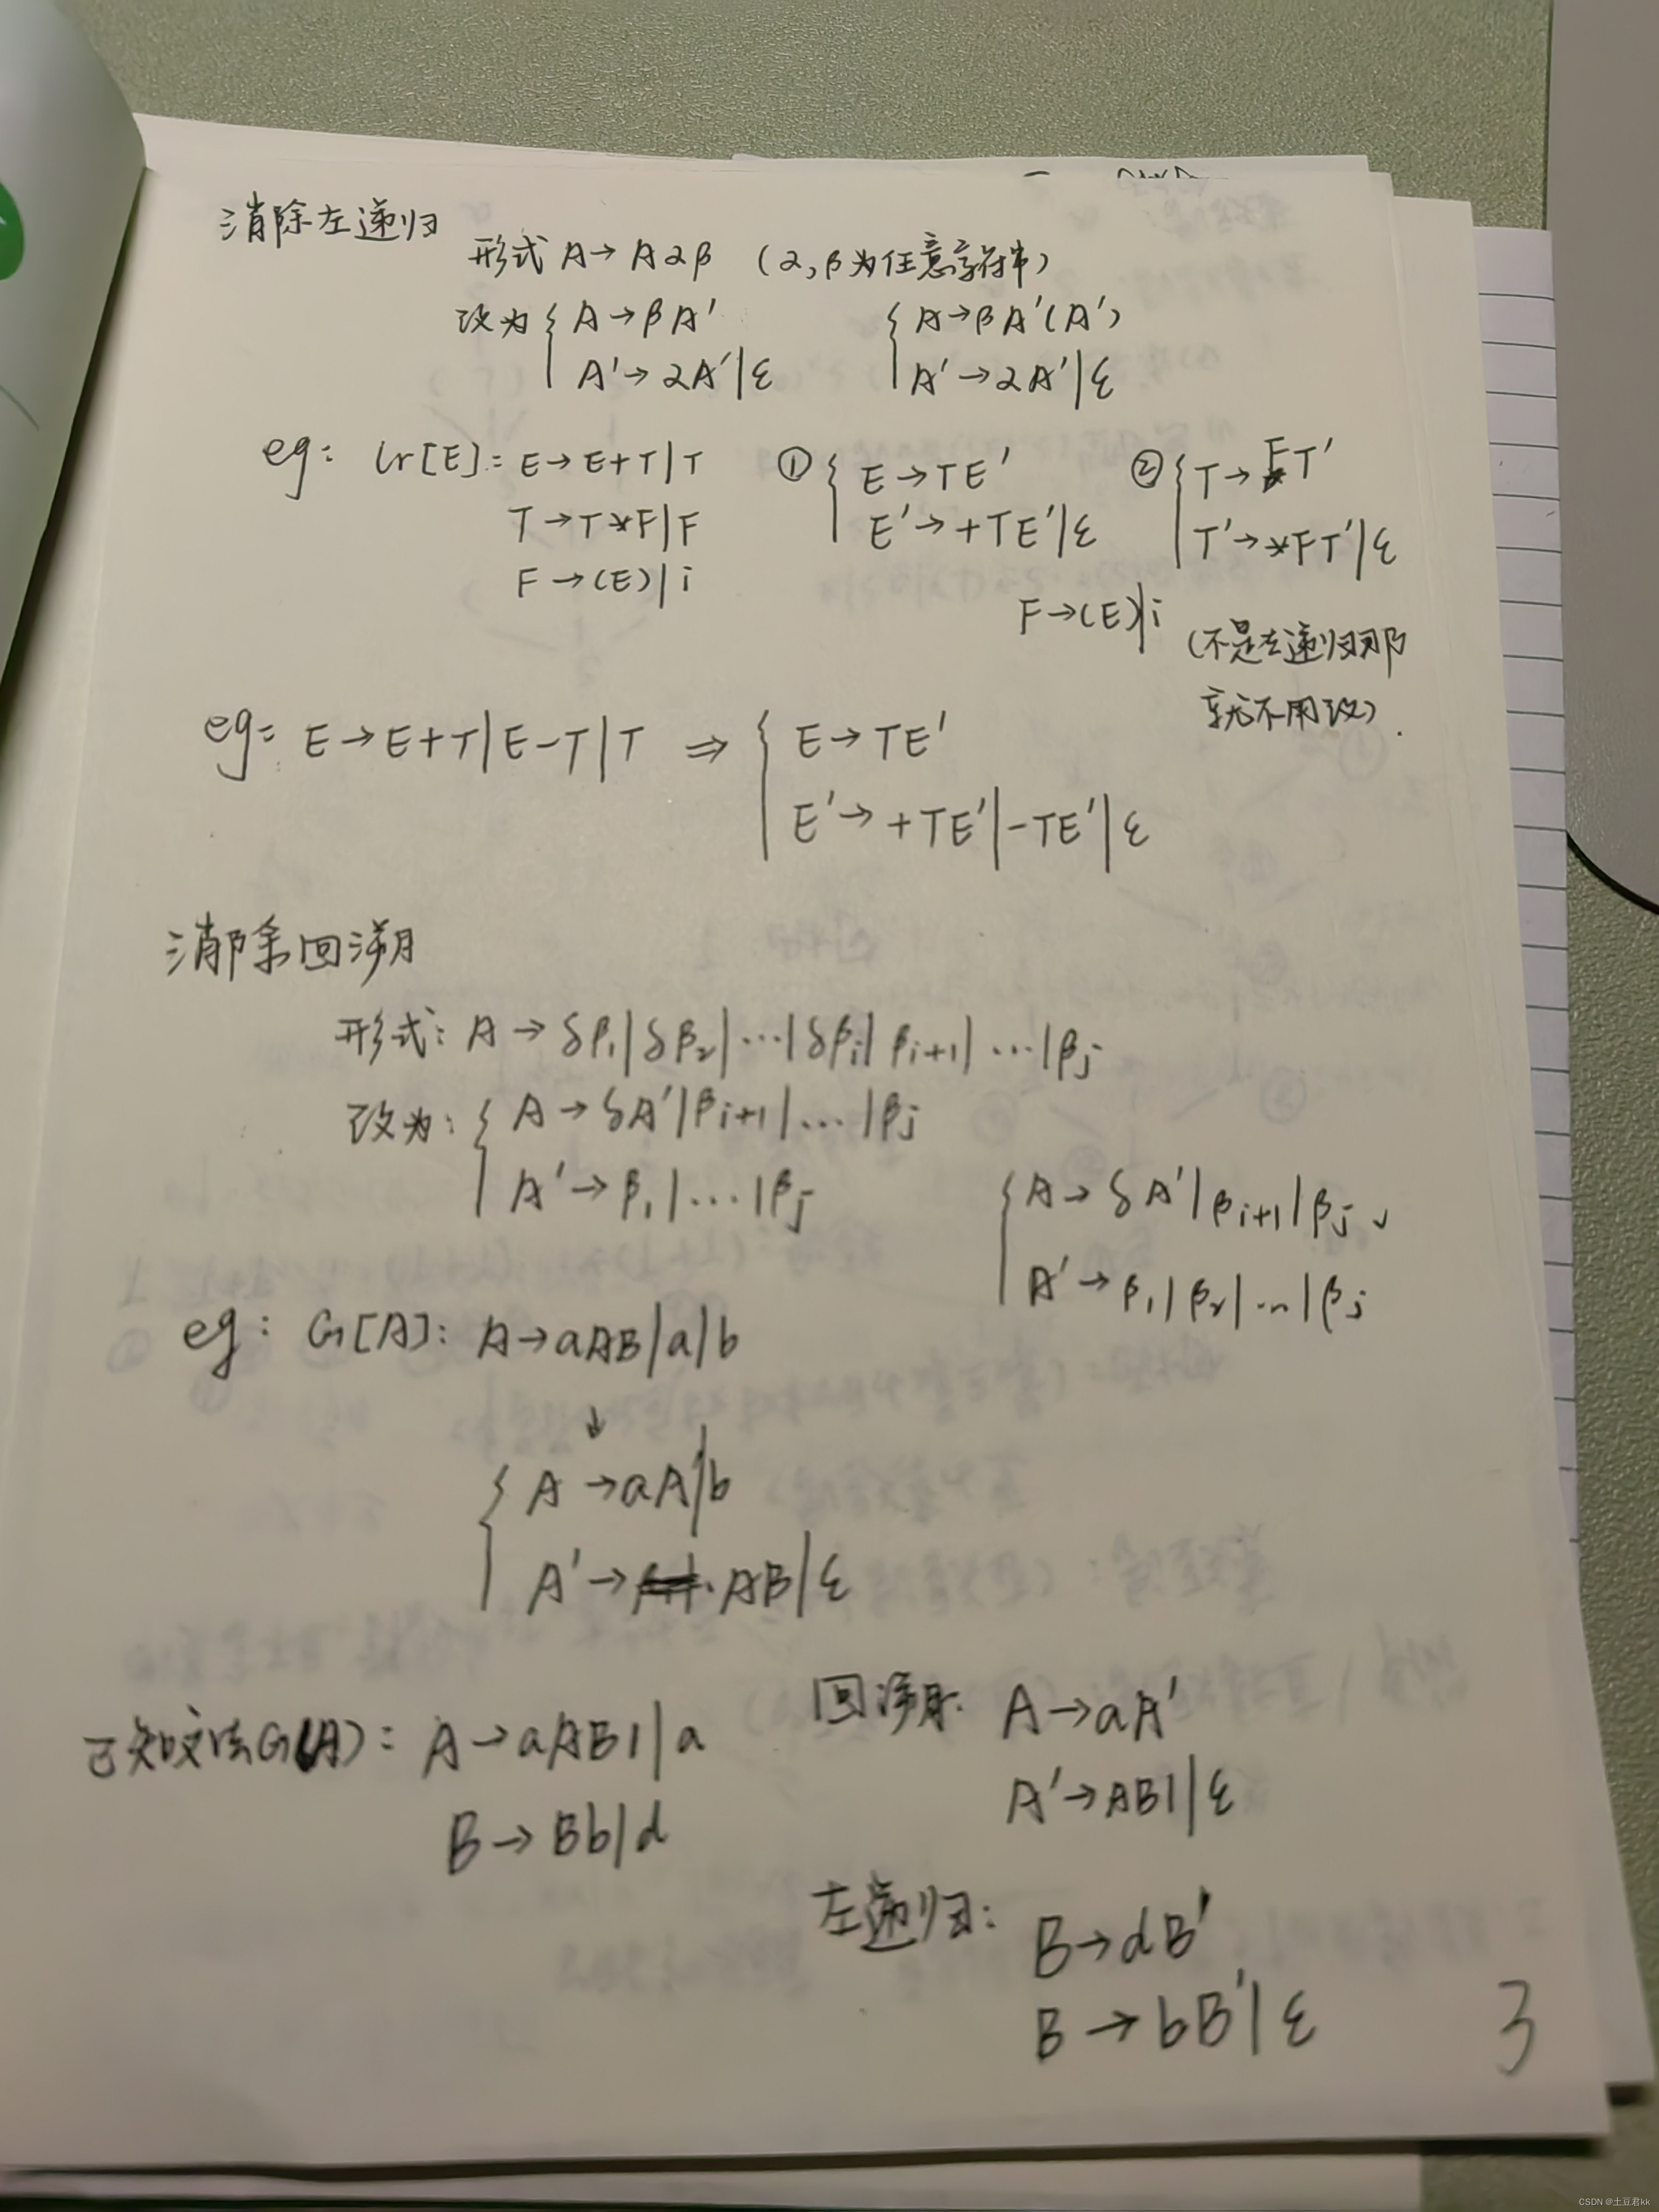 消除左递归
形式 A→Aαβ (α,β为任意字符串)
改为 { A→βA' { A→βA'(A')
A'→αA'|ε A'→αA'|ε
eg: G[E]: E→E+T|T ① { E→TE' ② { T→FT'
T→T*F|F E'→+TE'|ε T'→*FT'|ε
F→(E)|i F→(E)|i (不是左递归那
就不用改).
eg: E→E+T|E-T|T ⇒ { E→TE'
E'→+TE'|-TE'|ε
消除回溯
形式: A→δβ₁|δβ₂|…|δβi|βi+1|…|βj
改为: { A→δA'|βi+1|…|βj
A'→β₁|…|βj
{ A→δA'|βi+1|βj
A'→β₁|β₂|…|βj
eg: G[A]: A→aAB|a|b
↓
{ A→aA'|b
A'→AB|ε
已知文法G(A): A→aABl|a
B→Bb|d
回溯: A→aA'
A'→ABl|ε
左递归: B→dB'
B→bB'|ε
3
CSDN @土豆君kk